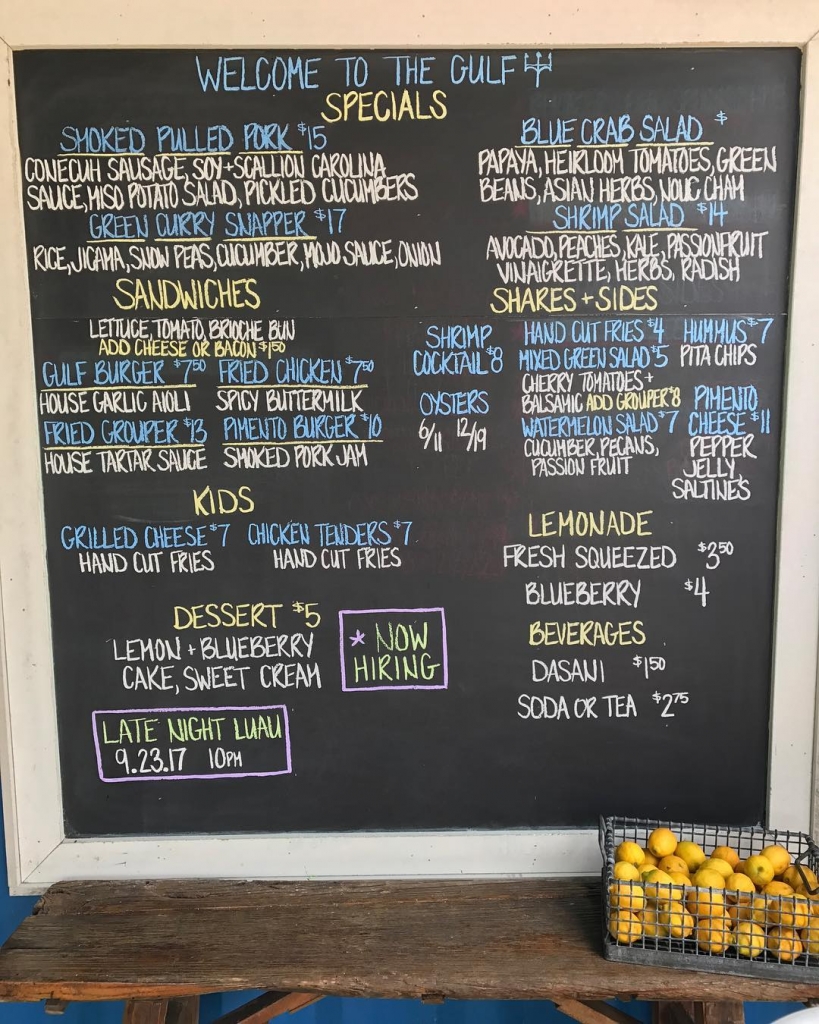 WELCOME TO THE GULF
SPECIALS
SMOKED PULLED PORK $15
CONECUH SAUSAGE, SOY+SCALLION CAROLINA
SAUCE, MISO POTATO SALAD, PICKLED CUCUMBERS
GREEN CURRY SNAPPER $17
RICE, JICAMA, SNOW PEAS, CUCUMBER, MOJO SAUCE, ONION
BLUE CRAB SALAD $
PAPAYA, HEIRLOOM TOMATOES, GREEN
BEANS, ASIAN HERBS, NOUC CHAM
SHRIMP SALAD $14
AVOCADO, PEACHES, KALE, PASSIONFRUIT
VINAIGRETTE, HERBS, RADISH
SANDWICHES
LETTUCE, TOMATO, BRIOCHE BUN
ADD CHEESE OR BACON $1.50
GULF BURGER $7.50 FRIED CHICKEN $7.50
HOUSE GARLIC AIOLI SPICY BUTTERMILK
FRIED GROUPER $13 PIMENTO BURGER $10
HOUSE TARTAR SAUCE SMOKED PORK JAM
SHARES + SIDES
SHRIMP
COCKTAIL $8
OYSTERS
6/11 12/19
HAND CUT FRIES $4
MIXED GREEN SALAD $5
CHERRY TOMATOES +
BALSAMIC ADD GROUPER $8
WATERMELON SALAD $7
CUCUMBER, PECANS,
PASSION FRUIT
HUMMUS $7
PITA CHIPS
PIMENTO
CHEESE $11
PEPPER
JELLY,
SALTINES
KIDS
GRILLED CHEESE $7 CHICKEN TENDERS $7
HAND CUT FRIES HAND CUT FRIES
LEMONADE
FRESH SQUEEZED $3.50
BLUEBERRY $4
BEVERAGES
DASANI $1.50
SODA OR TEA $2.75
DESSERT $5
LEMON + BLUEBERRY
CAKE, SWEET CREAM
* NOW
HIRING
LATE NIGHT LUAU
9.23.17 10PM